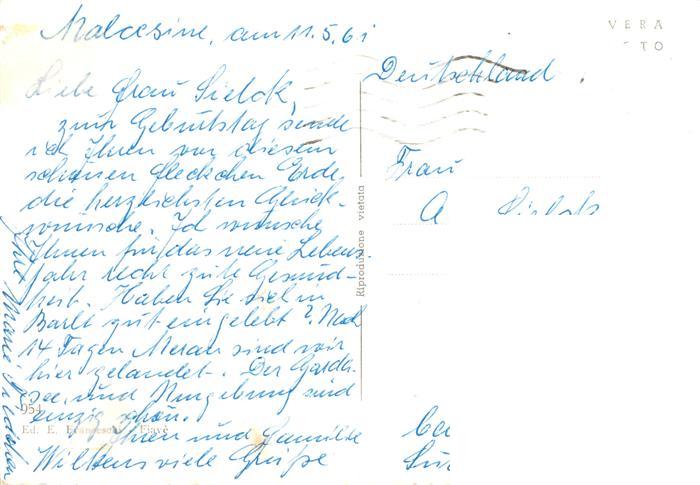 Malcesine, am 11.5.61
Liebe Frau Sielck,
zum Geburtstag sende
ich Ihnen von diesem
schönen Fleckchen Erde,
die herzlichsten Glück-
wünsche. Ich wünsche
Ihnen für das neue Lebens-
jahr recht gute Gesund-
heit. Haben Sie sich in
Barlt gut eingelebt? Nach
14 Tagen Meran sind wir
hier gelandet. Der Garda-
see und Umgebung sind
einzig schön.
Ihnen und Familie
Wilkens viele Grüße
Ihre
954
Ed. E. Fiavè
Riproduzione vietata
VERA
TO
Deutschland
Frau
A